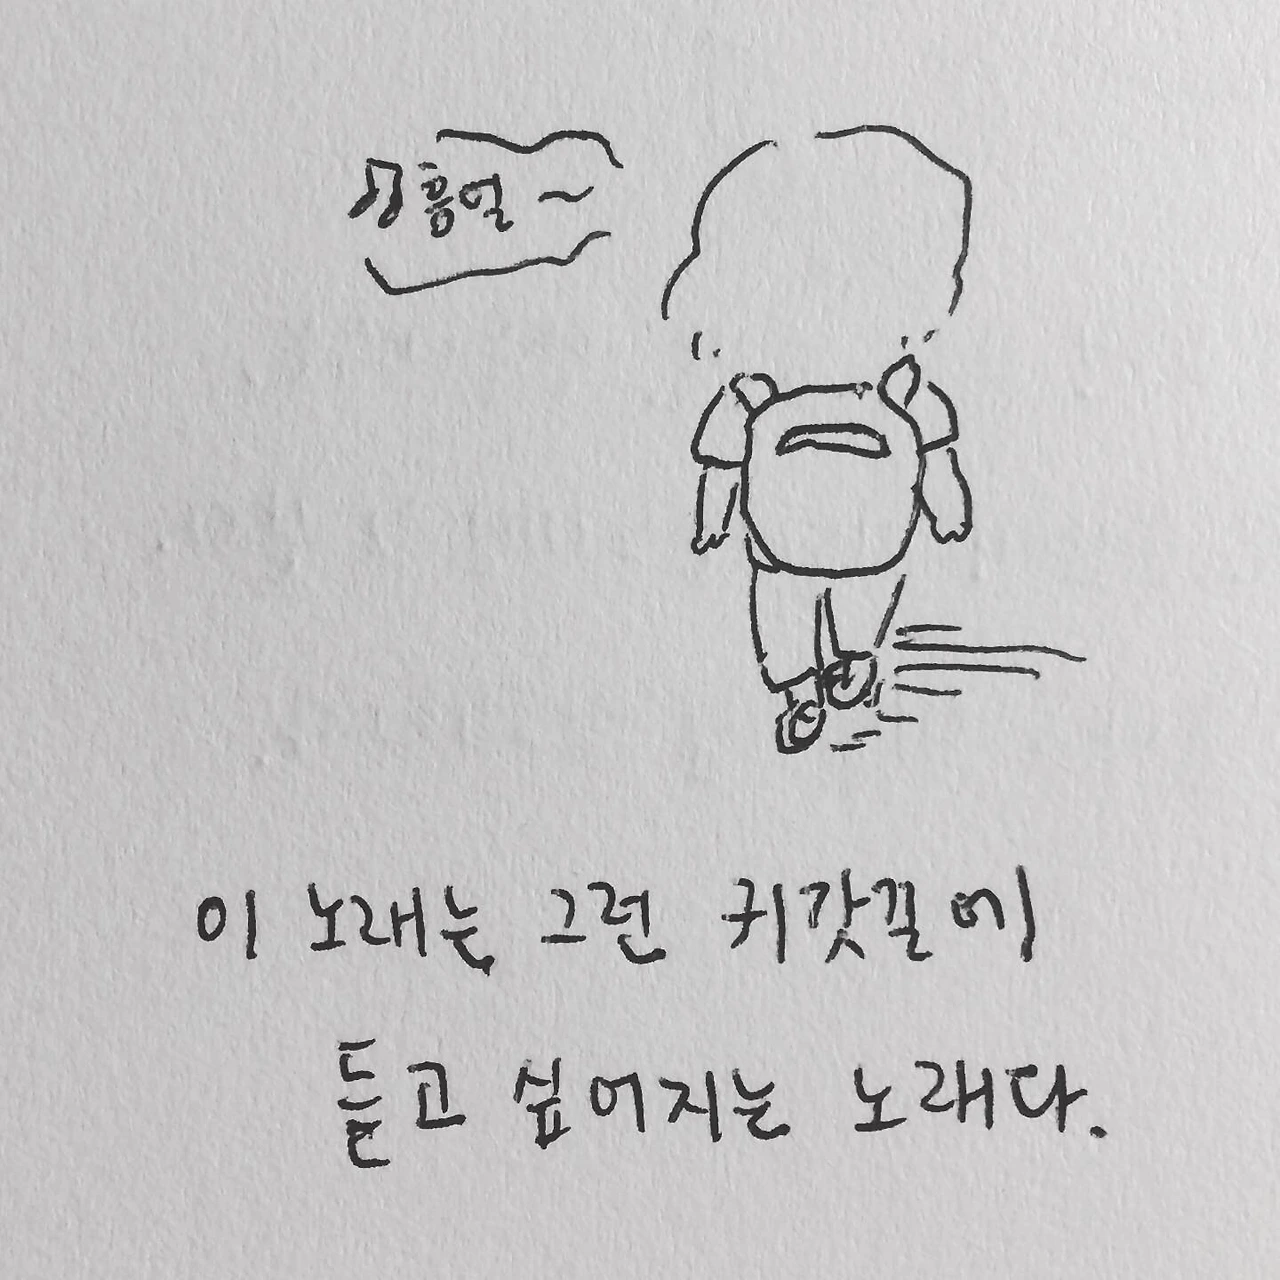 ♫ 흥얼~
이 노래는 그런 귀갓길에
듣고 싶어지는 노래다.